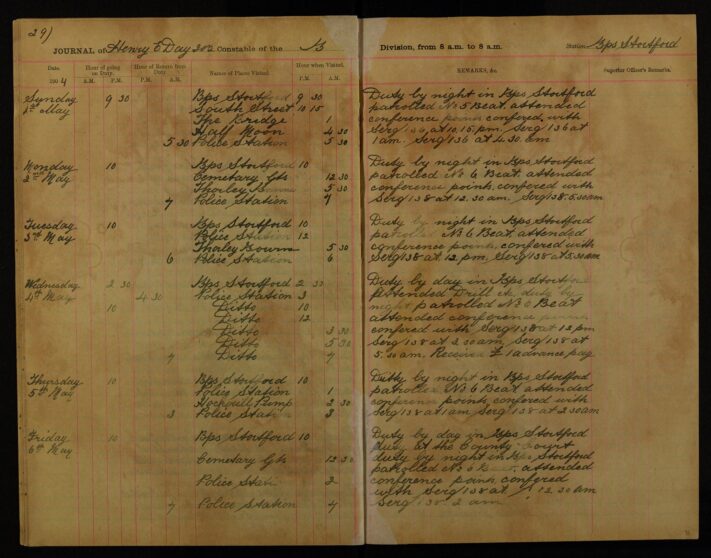 29)
JOURNAL of Henry E Day 302 Constable of the B Division, from 8 a.m. to 8 a.m. Station Bps Stortford
Date. Hour of going on Duty. Hour of Return from Duty. Names of Places Visited. Hour when Visited. REMARKS, &c. Superior Officer's Remarks.
1904 A.M. P.M. P.M. A.M. P.M. A.M.
Sunday 9 30 Bps Stortford 9 30 Duty by night in Bps Stortford
1st May South Street 10 15 patrolled No 5 Beat. attended
The Bridge 1 conference points confered with
Half Moon 4 30 Serg 136 at 10.15 pm. Serg 136 at
5 30 Police Station 5 30 1 am. Serg 136 at 4.30 am
Monday 10 Bps Stortford 10 Duty by night in Bps Stortford
2nd May Cemetary Gts 12 30 patrolled No 6 Beat. attended
Thorley 5 30 conference points, confered with
7 Police Station 7 Serg 138 at 12.30 am. Serg 138. 5.30am
Tuesday 10 Bps Stortford 10 Duty by night in Bps Stortford
3rd May Police Station 12 patrolled No 6 Beat. attended
Thorley Bourne 5 30 conference points, confered with
6 Police Station 6 Serg 138 at 12 pm. Serg 138 at 5.30am
Wednesday 2 30 Bps Stortford 2 30 Duty by day in Bps Stortford
4th May 4 30 Police Station 3 attended Drill etc duty by
10 Ditto 10 night patrolled No 6 Beat
Ditto 12 attended conference points
Ditto 2 30 confered with Serg 138 at 12 pm
Ditto 5 30 Serg 138 at 2 30am, Serg 138 at
7 Ditto 7 5.30 am. Received £1 advance pay
Thursday 10 Bps Stortford 10 Duty by night in Bps Stortford
5th May Police Station 1 patrolled No 6 Beat attended
Hockerill Pump 2 30 conference points, confered with
3 Police Station 3 Serg 138 at 1am Serg 138 at 2 30am
Friday 10 Bps Stortford 10 Duty by day in Bps Stortford
6th May duty at the County Court
Cemetary Gts 12 30 duty by night in Bps Stortford
patrolled No 6 attended
Police Stati 2 conference points confered
with Serg 138 at 12 30am
7 Police Station 7 Serg 138 2 am